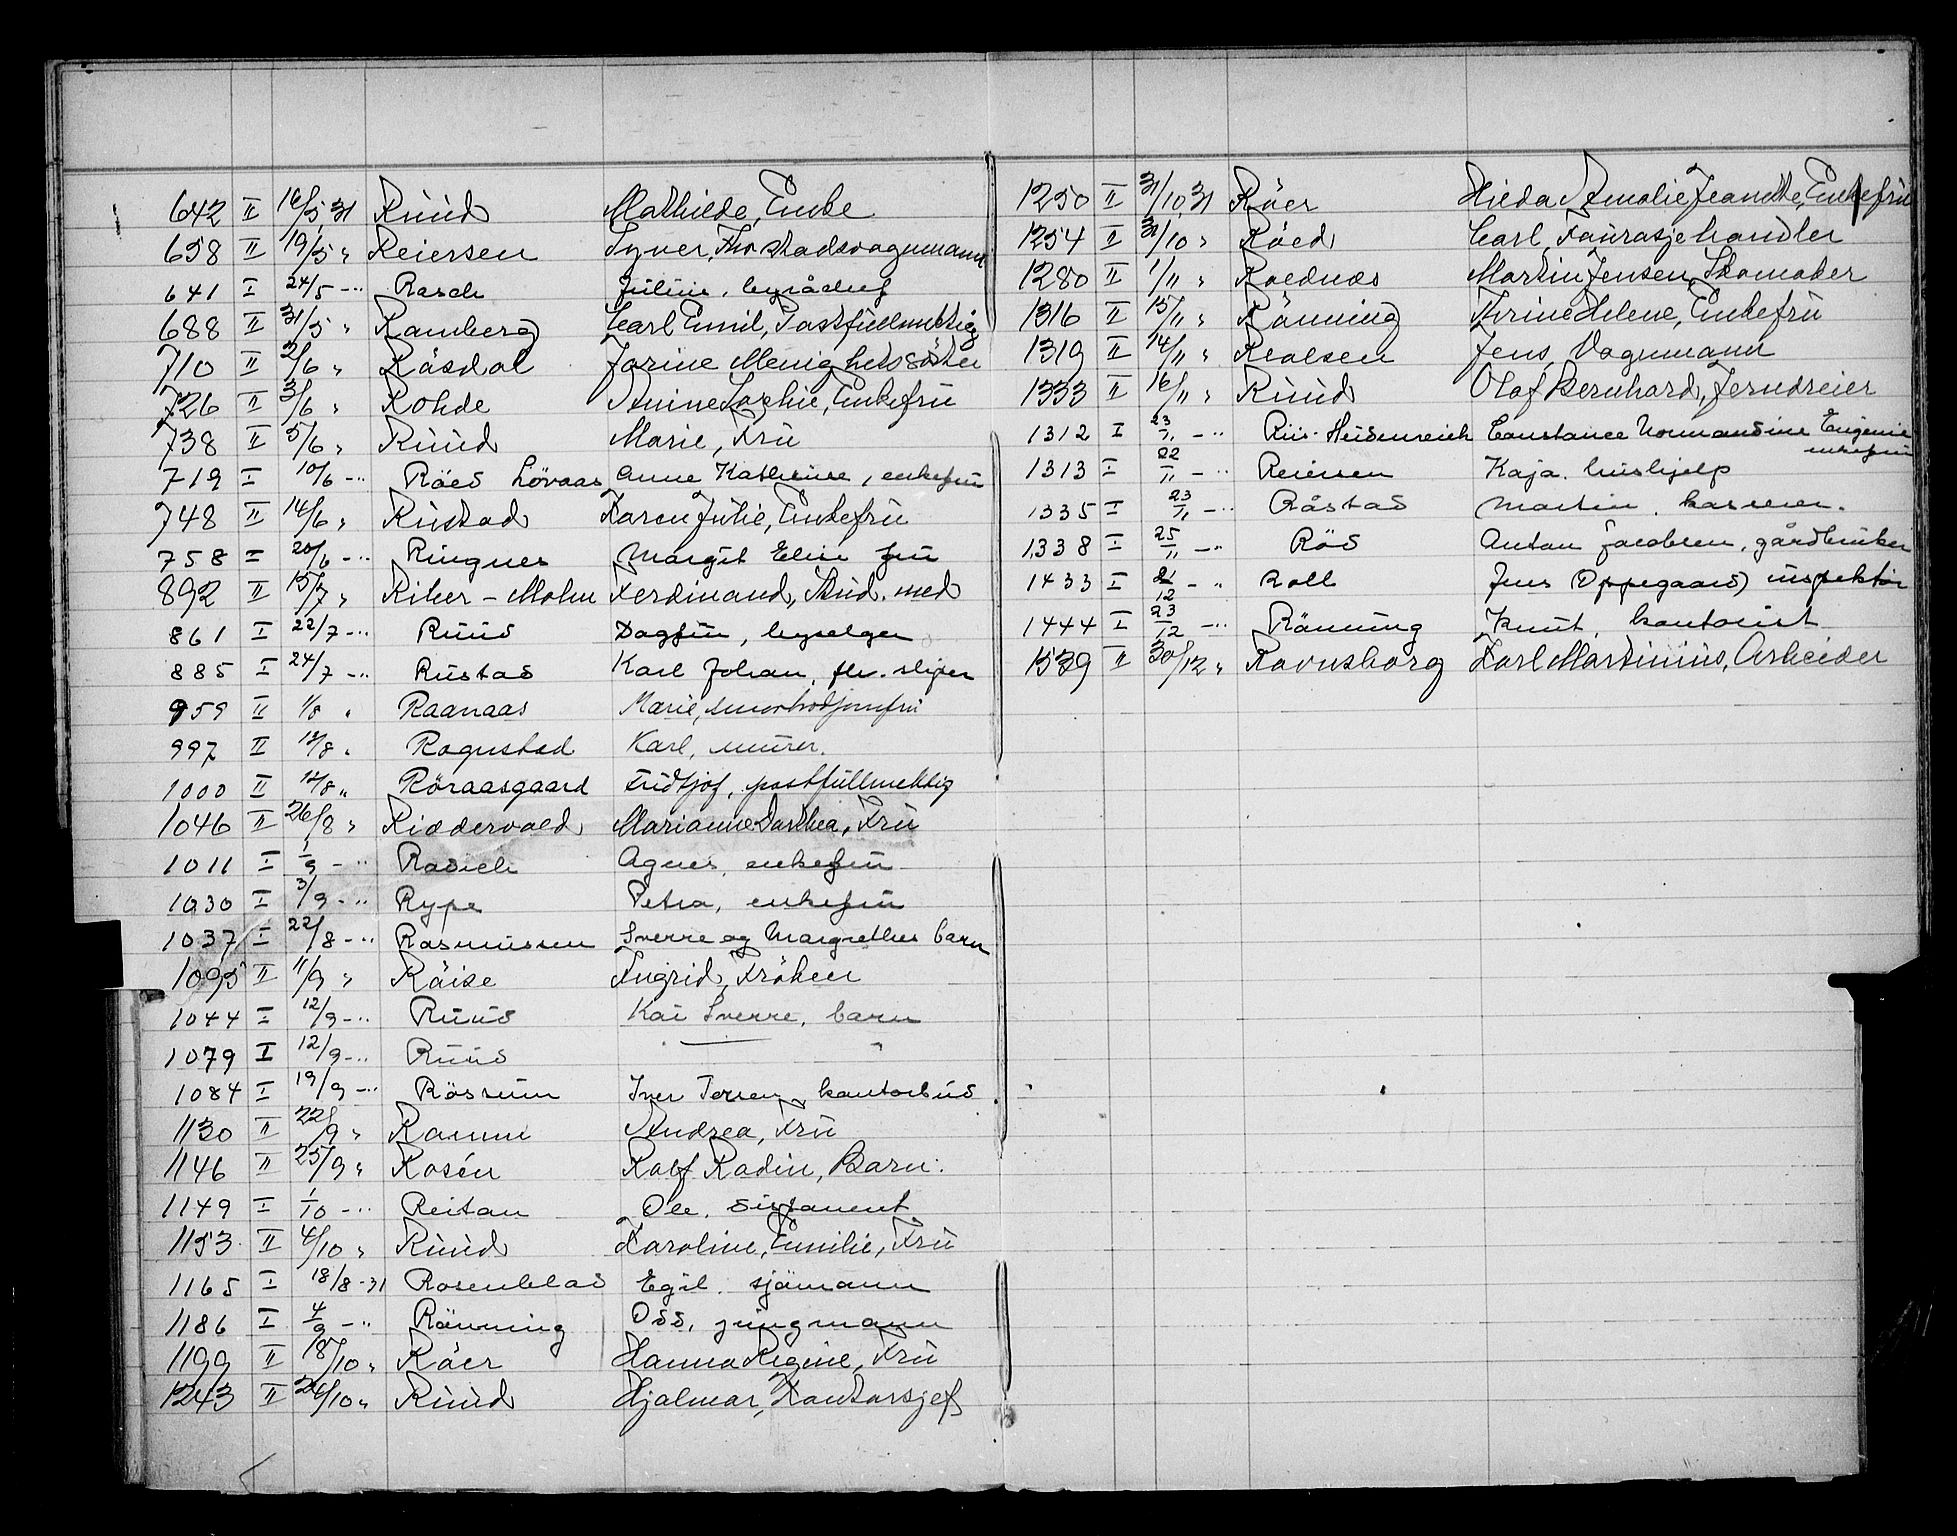 642 II 16/5 31 Ruud Mathilde, Enke
658 II 19/5 " Reiersen Syver, Fhv.
641 I 24/5 -" Rasch Julius, byråchef
688 II 31/5 " Ramberg Carl Emil, Postfullmektig
710 II 2/6 " Råsdal Jorine Menighetssöster
726 II 3/6 " Rohde Anine Sophie, Enkefru
738 II 5/6 " Ruud Marie, Fru
719 I 10/6 -" Röed Lövaas Anne Kathrine, enkefru
748 II 14/6 " Rustad Karen Julie, Enkefru
758 I 20/6 -" Ringnes Margit Elise fru
892 II 15/7 " Riker - Mohn Ferdinand, Stud. med
861 I 22/7 -" Ruud Dagfin, byselger
885 I 24/7 -" Rustad Karl Johan, fhv. sliper
959 II 1/8 " Raanaas Marie, smørbrödjomfru
997 II 12/8 " Rognstad Karl, murer.
1000 II 12/8 " Röraasgaard Fridtjof, postfullmektig
1046 II 26/8 " Riddervold Marianne Dorthea, Fru
1011 I 1/9 -" Radich Agnes, enkefru
1030 I 3/9 -" Rype Petra, enkefru
1037 I 22/8 -" Rasmussen Sverre og Margrethes barn
1095 II 11/9 " Röise Ingrid, Fröken
1044 I 12/9 -" Ruud Kai Sverre, barn
1079 I 12/9 -" Ruud — "
1084 I 19/9 -" Rössum Iver Iversen, kontorbud
1130 II 22/9 " Ramm Andrea, Fru
1146 II 25/9 " Rosén Rolf Radin, Barn.
1149 I 1/10 -" Reitan Ole,
1153 II 4/10 " Ruud Karoline, Emilie, Fru
1165 I 18/8 -31 Rosenblad Egil. sjömann
1186 I 4/9 -" Rönning Odd, jungmann
1199 II 18/10 " Röer Hanna Regine, Fru
1243 II 26/10 " Ruud Hjalmar, Kontorsjef
1250 II 31/10 31 Röer Hilda Amalie Jeanette, Enkefru
1254 II 31/10 " Röed Carl, Fourasjehandler
1280 II 1/11 " Roednæs Martin Jensen, Skomaker
1316 II 15/11 " Rönning Thrine Helene, Enkefru
1319 II 14/11 " Roalsen Jens, Vognmann
1333 II 16/11 " Ruud Olaf Bernhard, Jerndreier
1312 I 23/11 -" Riis-Heidenreich Constance Normandine Eugenie
enkefru
1313 I 22/11 -" Reiersen Kaja. hushjelp
1335 I 23/11 -" Råstad Martin. kasserer.
1338 I 25/11 -" Röd Anton Jacobsen, gårdbruker
1433 I 21/12 -" Roll Jens (Oppegaard) inspektör
1444 I 23/12 -" Rönning Knut, kontorist
1539 II 30/12 " Ravnsborg Karl Martinius, Arbeider